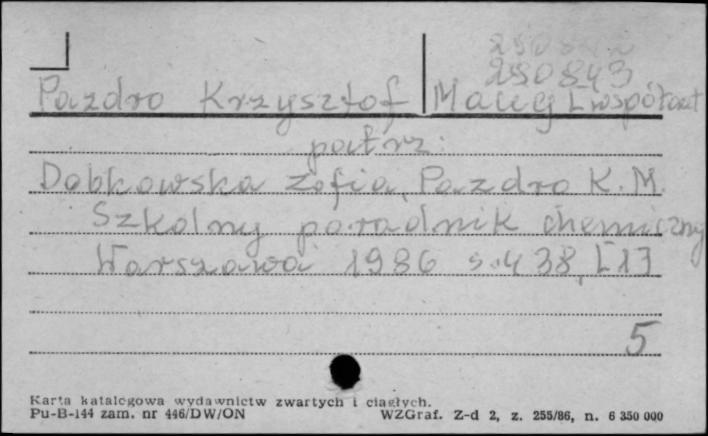 250843
Pazdro Krzysztof Maciej [współaut
patrz:
Dobkowska Zofia, Pazdro K. M.
Szkolny poradnik chemiczny
Warszawa 1986 s. 438, [1]
5
Karta katalogowa wydawnictw zwartych i ciągłych.
Pu-B-144 zam. nr 446/DW/ON WZGraf. Z-d 2, z. 255/86, n. 6 350 000